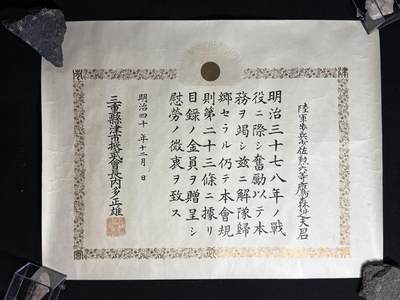 陸軍歩兵少佐勲六等鷹森
明治三十七八年ノ戦
役ニ際シ奮勵以テ本
務ヲ竭シ茲ニ解隊歸
郷セラル仍テ本會規
則第二十三條ニ據リ
目録ノ金員ヲ贈呈シ
慰勞ノ微衷ヲ致ス
明治四十年十二月 日
三重縣津市 會長内多正雄